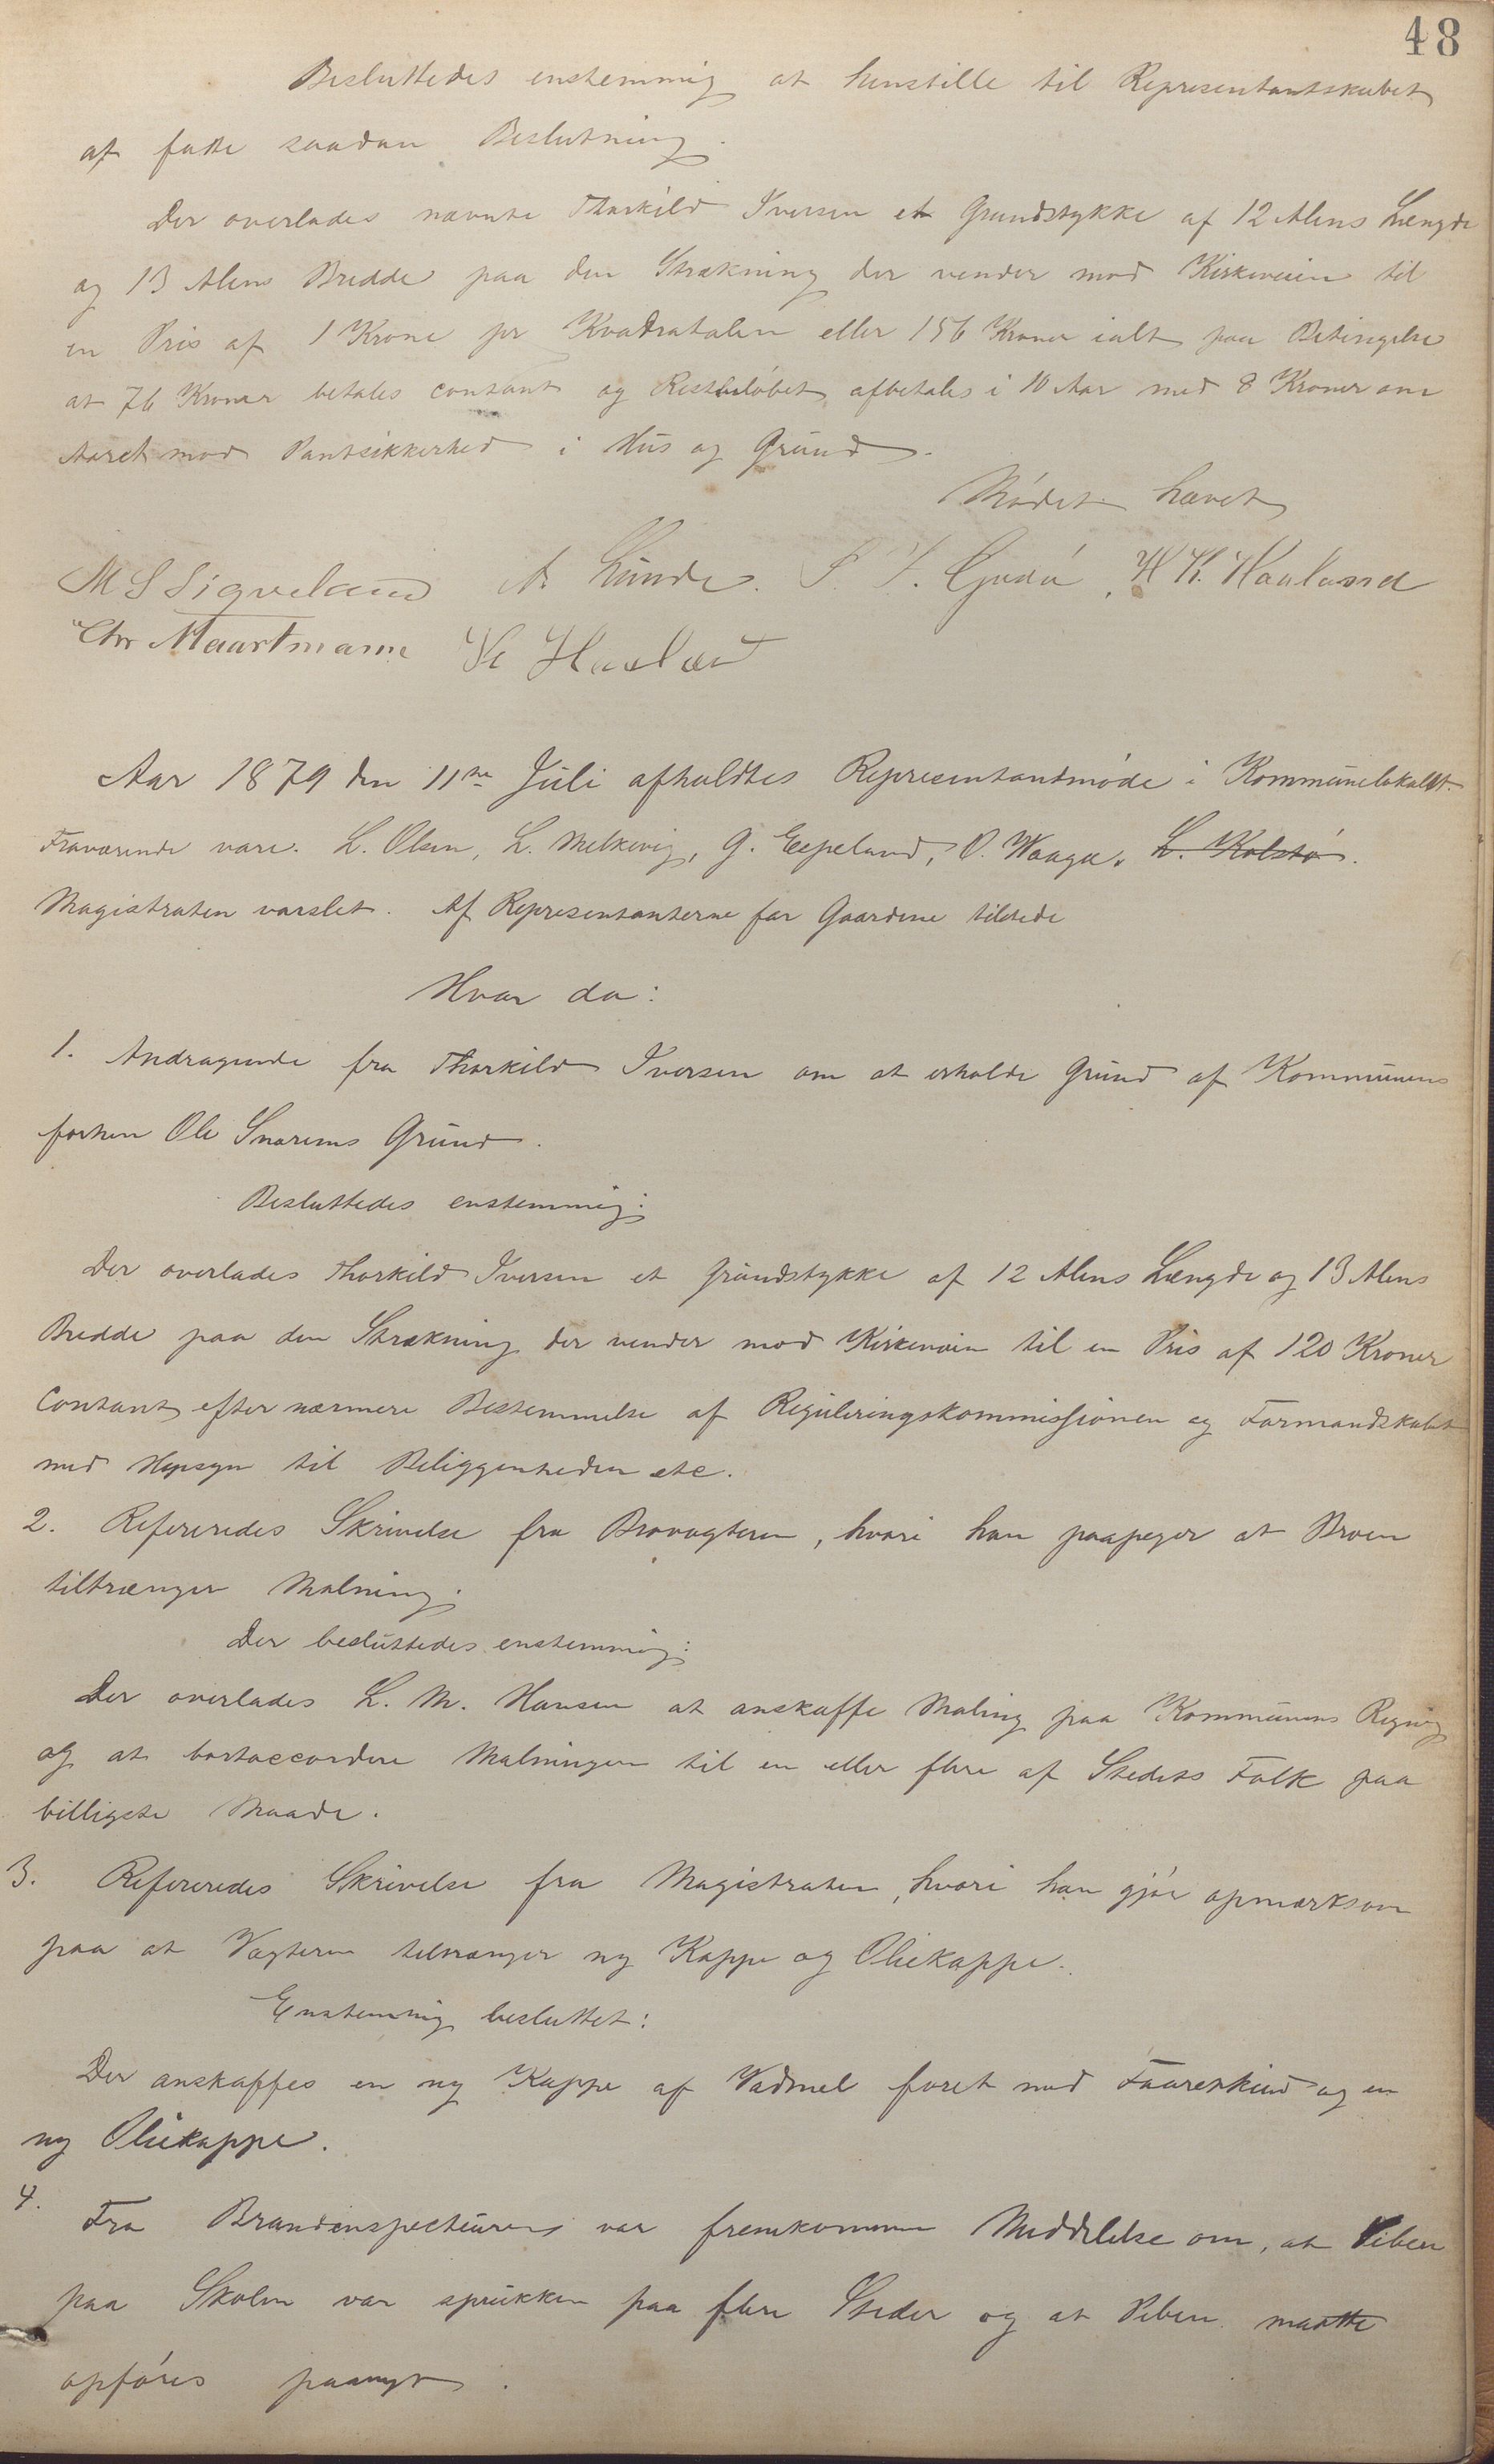 48
Besluttedes enstemmig at henstille til Representantskabet
at fatte saadan Beslutning.
Der overlades nævnte Thorkild Iversen et Grundstykke af 12 Alens Længde
og 13 Alens Bredde paa den Strækning der vender mod Kirkeveien til
en Pris af 1 Krone pr Kvadratalen eller 156 Kroner ialt paa Betingelse
at 76 Kroner betales contant og Restbeløbet afbetales i 10 Aar med 8 Kroner om
Aaret mod Pantsikkerhed i Hus og Grund.
Mødet hævet
M S Sigveland A. Lunde. P. T. Gjedø, H K. Haaland
Chr Maartmann K Haaland
Aar 1879 den 11te Juli afholdtes Representantmøde i Kommunelokalet.
Fraværende vare. L. Olsen, L. Melkevig, G. Eepeland, O. Waage, L. Kolstø.
Magistraten varslet. Af Representanterne for Gaardene tilstede
Hvor da:
1. Andragende fra Thorkild Iversen om at erholde Grund af Kommunens
forhen Ole Snorems Grund.
Besluttedes enstemmig:
Der overlades Thorkild Iversen et Grundstykke af 12 Alens Længde og 13 Alens
Bredde paa den Strækning der vender mod Kirkeveien til en Pris af 120 Kroner
Contant efter nærmere Bestemmelse af Reguleringskommissionen og Formandskabet
med Hensyn til Beliggenheden etc.
2. Refereredes Skrivelse fra Brovogteren, hvori han paapeger at Broen
tiltrænger Malning.
Der besluttedes enstemmig:
Der overlades L. M. Hansen at anskaffe Maling paa Kommunens Regning
og at bortaccordere Malningen til en eller flere af Stedets Folk paa
billigste Maade.
3. Refereredes Skrivelse fra Magistraten, hvori han gjør opmærksom
paa at Vægteren tiltrænger ny Kappe og Oliekappe.
Enstemmig besluttet:
Der anskaffes en ny Kappe af Vadmel foret med Faareskind og en
ny Oliekappe.
4. Fra Brandinspecteuren var fremkommen Meddelelse om, at Piben
paa Skolen var sprukken paa flere Steder og at Piben maatte
opføres paanyt.